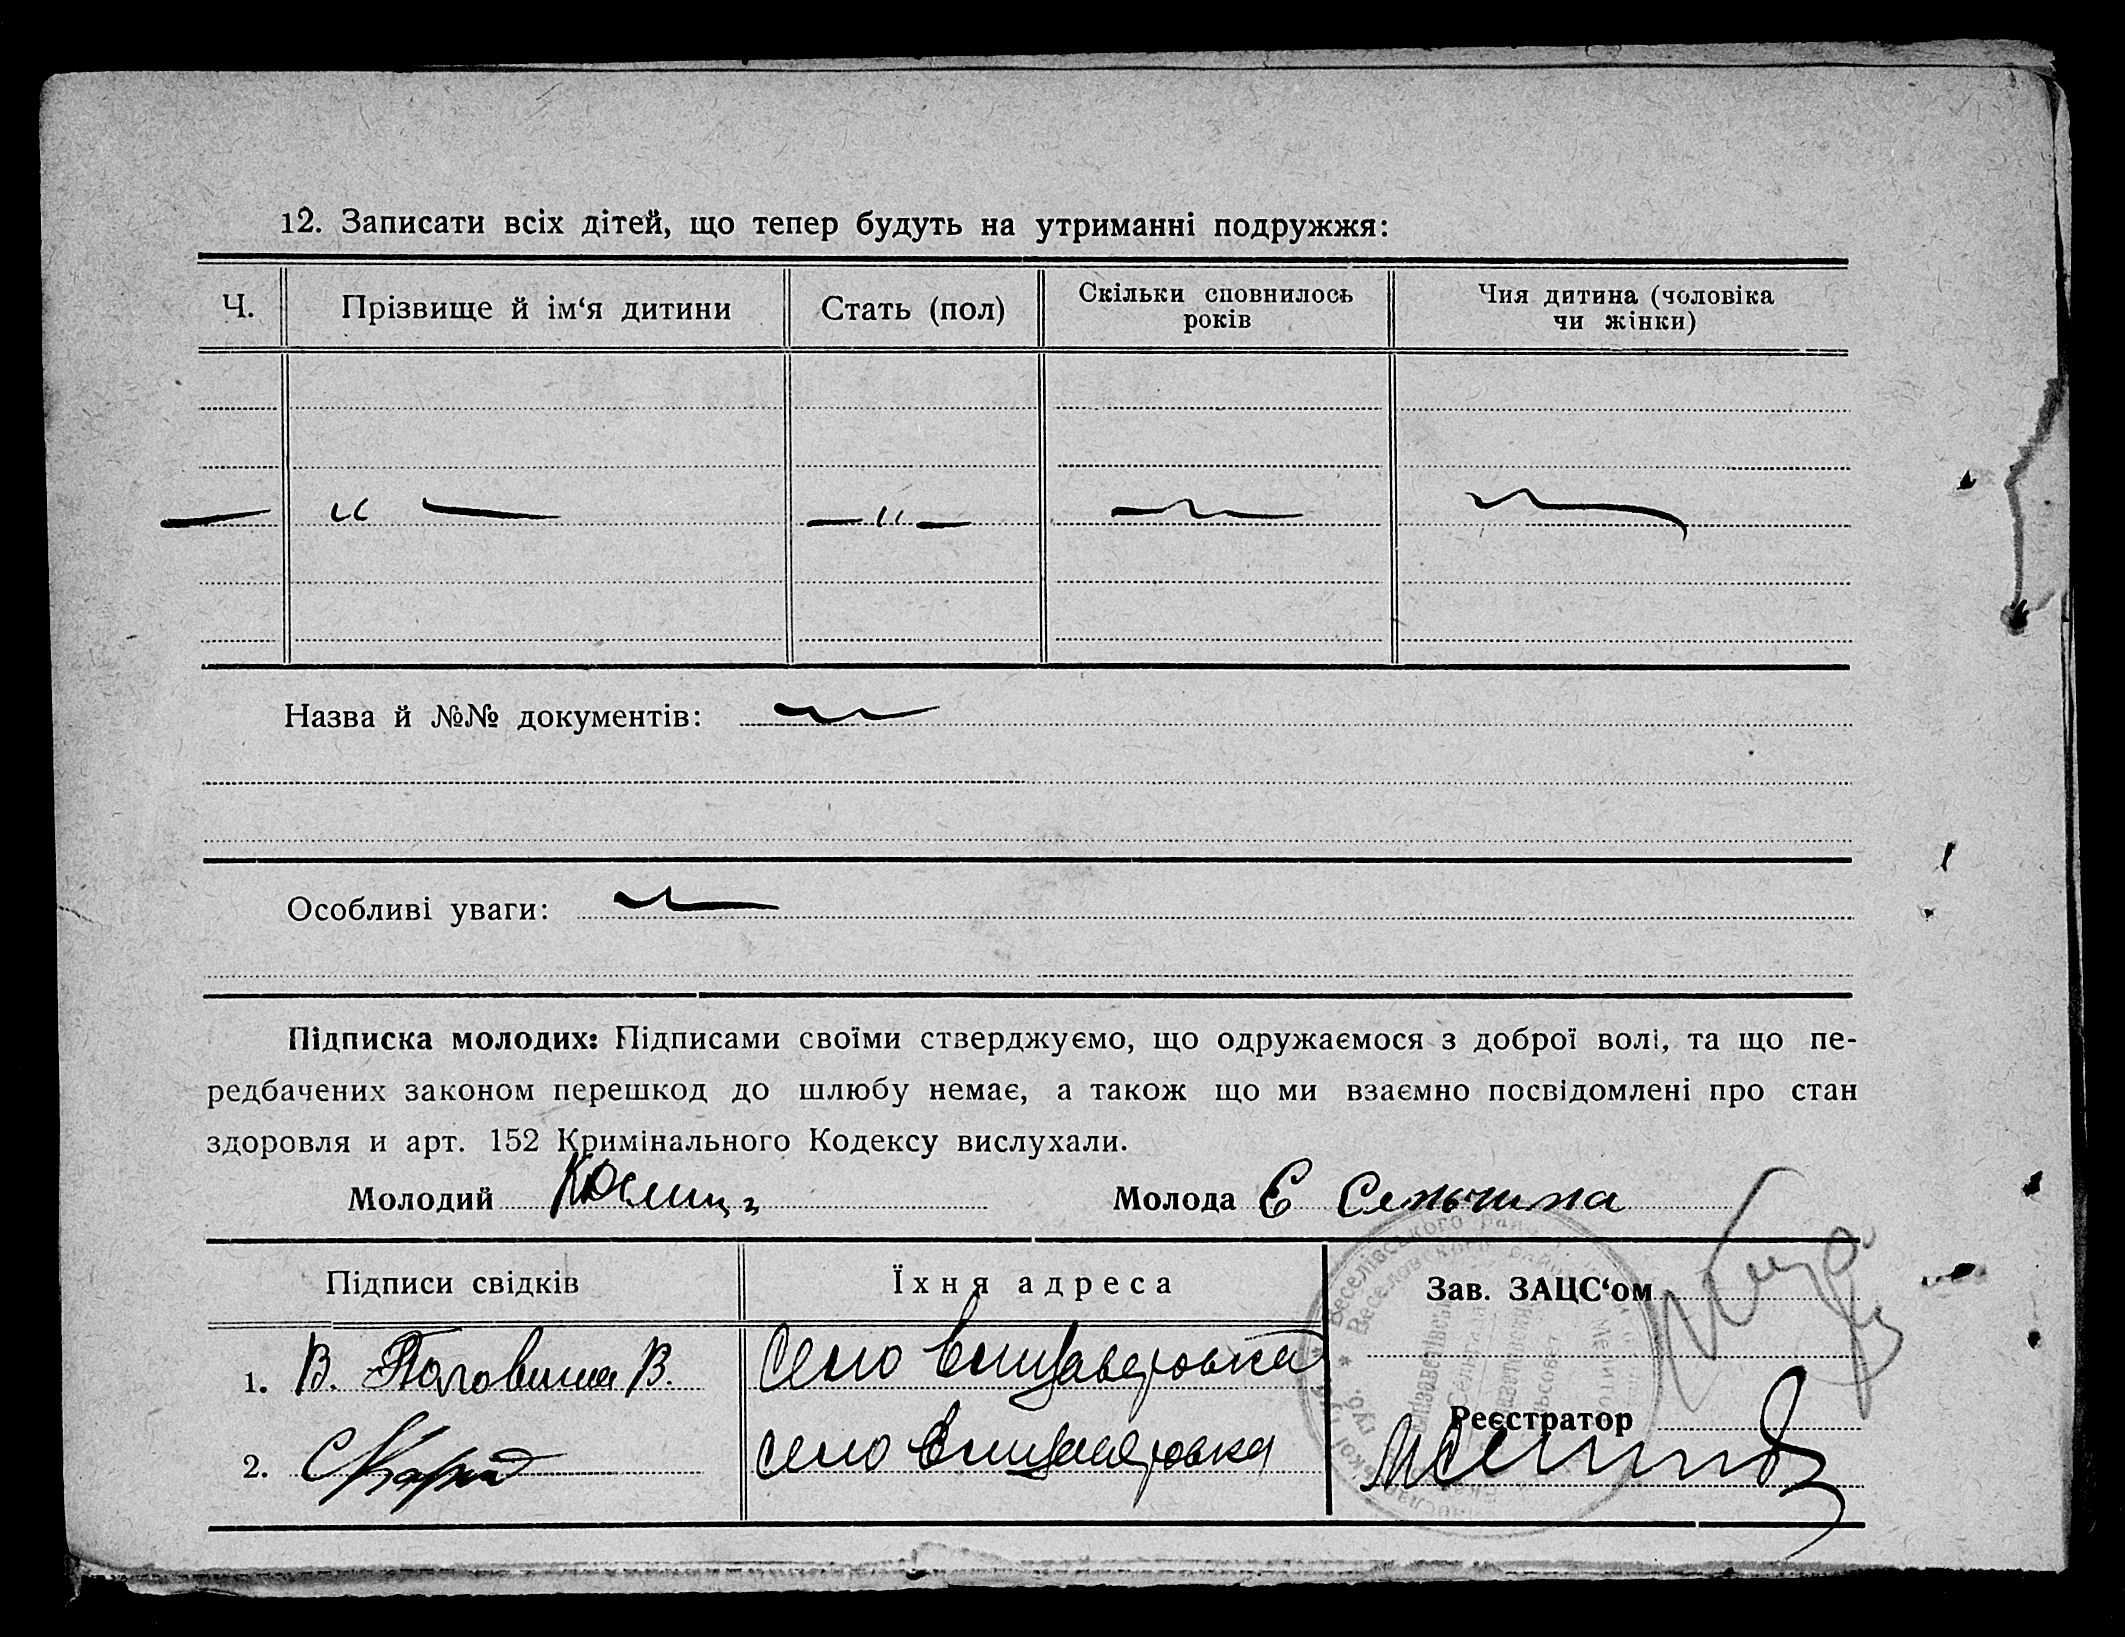 12. Записати всіх дітей, що тепер будуть на утриманні подружжя:
Ч. Прізвище й ім‘я дитини Стать (пол) Скільки сповнилось років Чия дитина (чоловіка чи жінки)
— " — — " —
Назва й №№ документів:
Особливі уваги:
Підписка молодих: Підписами своїми стверджуємо, що одружаємося з доброї волі, та що пе-
редбачених законом перешкод до шлюбу немає, а також що ми взаємно посвідомлені про стан
здоровля и арт. 152 Кримінального Кодексу вислухали.
Молодий Молода Є
Підписи свідків Їхня адреса Зав. ЗАЦС‘ом
1. В. Половина В. Село Єлизаветовка
2. село Єлизаветовка
Реєстратор
Веселівського
Веселовского